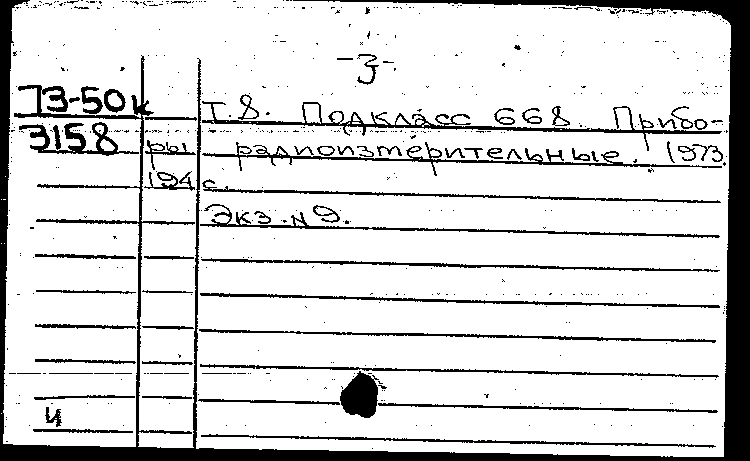 -3-
73-50к Т.8. Подкласс 668. Прибо-
3158 ры радиоизмерительные. 1973.
194 с.
Экз. N 9.
и